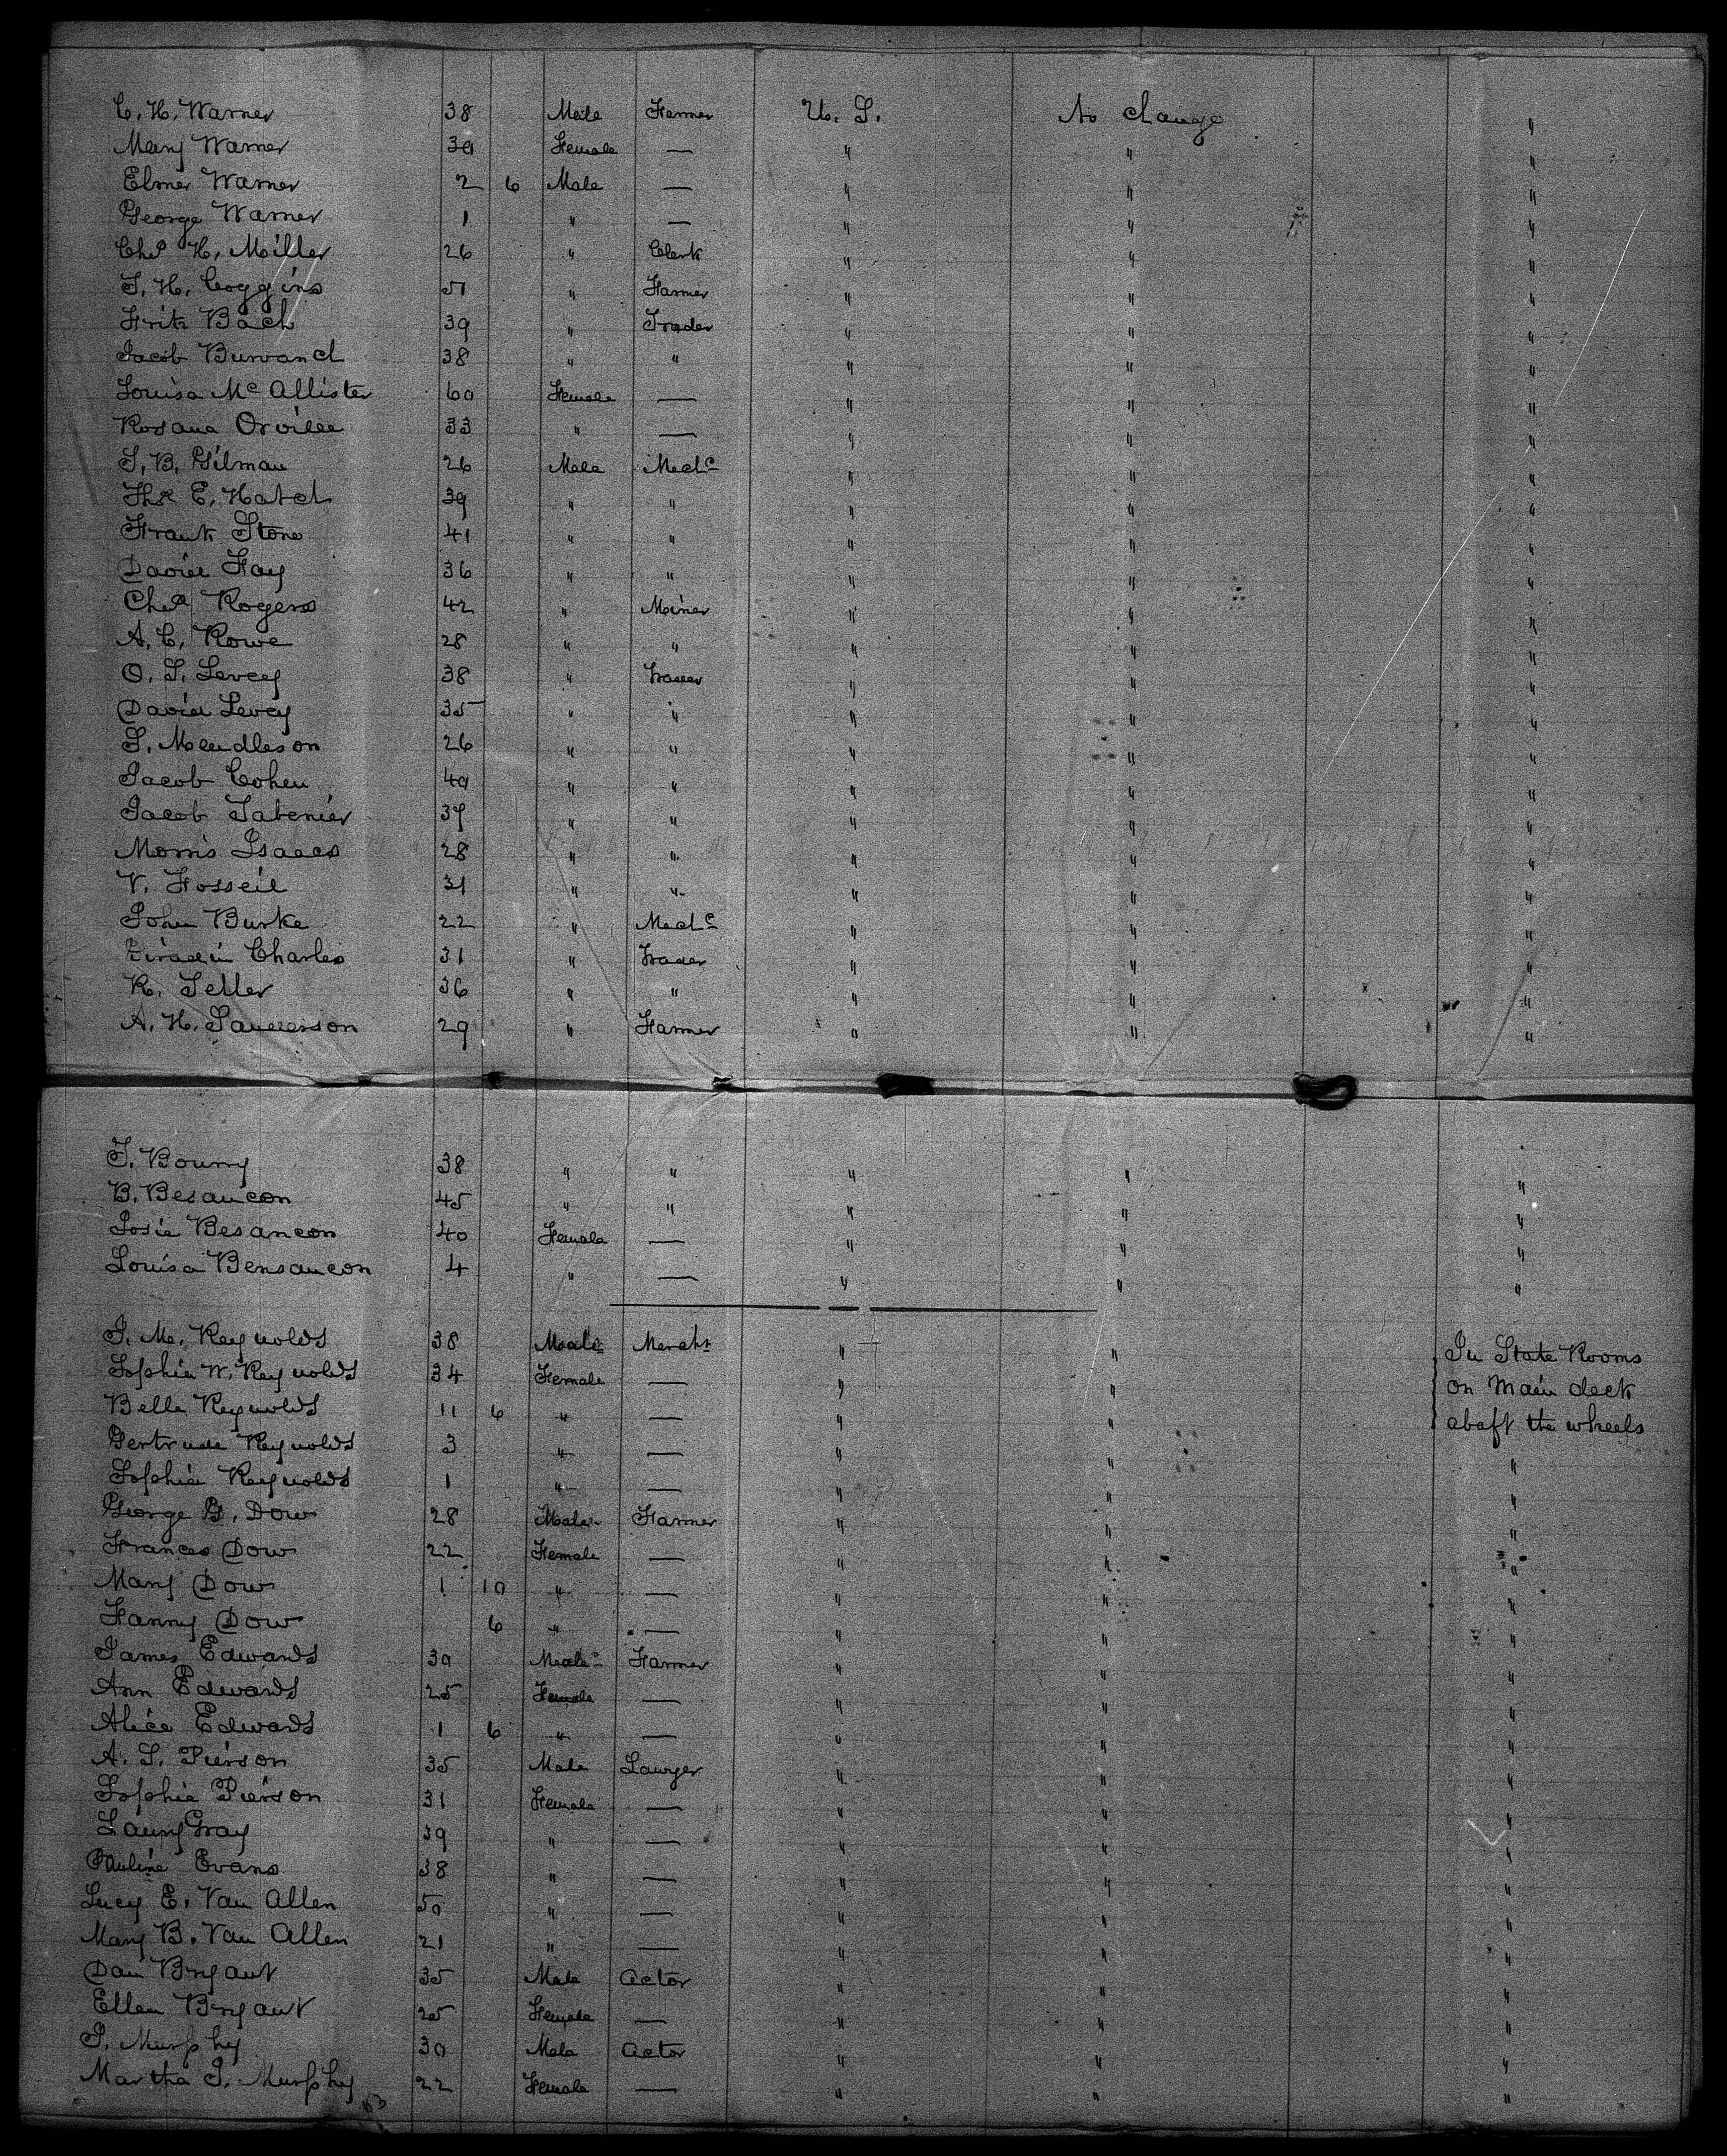 C. H. Warner 38 Male Farmer U. S. No change "
Mary Warner 30 Female — " " "
Elmer Warner 2 6 Male — " " "
George Warner 1 " — " " "
Chas H. Miller 26 " Clerk " " "
S. H. Coggins 51 " Farmer " " "
Fritz Bach 39 " Trader " " "
Jacob 38 " " " " "
Louisa Mc Allister 60 Female — " " "
Rosana Orville 33 " — " " "
S. B. Gilman 26 Male Mechc " " "
Thos E. Hatch 39 " " " " "
Frank Stone 41 " " " " "
David Fay 36 " " " " "
Chas Rogers 42 " Miner " " "
A. C. Rowe 28 " " " " "
O. S. Levey 38 " Trader " " "
David Levey 35 " " " " "
S. Mendleson 26 " " " " "
Jacob Cohen 40 " " " " "
Jacob 37 " " " " "
Morris Isaacs 28 " " " " "
V. 31 " " " " "
John Burke 22 " Mechc " " "
Charles 31 " Trader " " "
R. Seller 36 " " " " "
A. H. Sanderson 29 " Farmer " " "
38 " " " " "
B. Besancon 45 " " " " "
Josie Besancon 40 Female — " " "
Louisa Bensancon 4 " — " " "
J. M. Reynolds 38 Male Mercht " " In State Rooms
Sophia W. Reynolds 34 Female — " " on Main deck
Bella Reynolds 11 6 " — " " abaft the wheels
Gertrude Reynolds 3 " — " " "
Sophia Reynolds 1 " — " " "
George G. Dow 28 Male Farmer " " "
Frances Dow 22 Female — " " "
Mary Dow 1 10 " — " " "
Fanny Dow 6 " — " " "
James Edwards 30 Male Farmer " " "
Ann Edwards 25 Female — " " "
Alice Edwards 1 6 " — " " "
A. S. Pierson 35 Male Lawyer " " "
Sophia Pierson 31 Female — " " "
Gray 39 " — " " "
Pauline Evans 38 " — " " "
Lucy E. Van Allen 50 " — " " "
Mary B. Van Allen 21 " — " " "
Dan Bryant 35 Male Actor " " "
Ellen Bryant 25 Female — " " "
J. Murphy 30 Male Actor " " "
Martha J. Murphy 22 Female — " " "
63